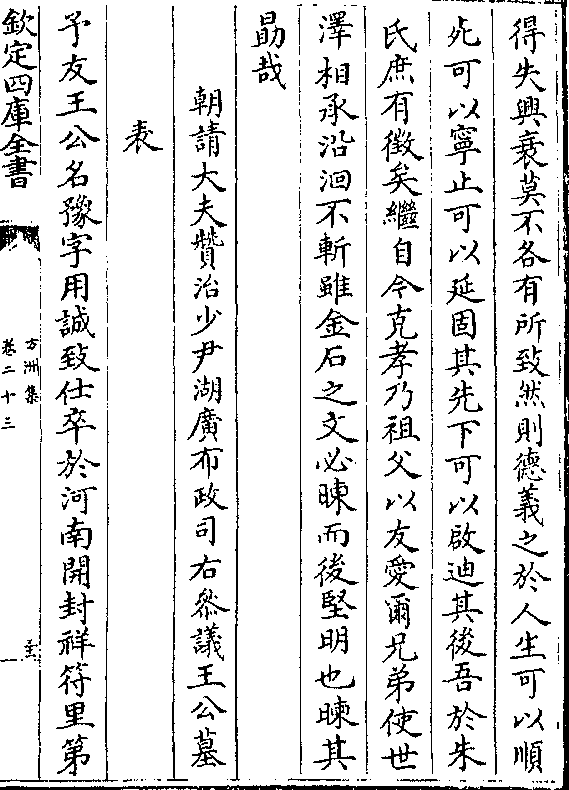 得失興衰莫不各有所致然則德義之於人生可以順
死可以寧止可以延固其先下可以啟迪其後吾於朱
氏庶有徵矣繼自今克孝乃祖父以友愛爾兄弟使世
澤相承沿洄不斬雖金石之文必暕而後堅明也暕其
勗哉
朝請大夫贊治少尹湖廣布政司右叅議王公墓
表
予友王公名豫字用誠致仕卒於河南開封祥符里第
欽定四庫全書
方洲集
卷二十三